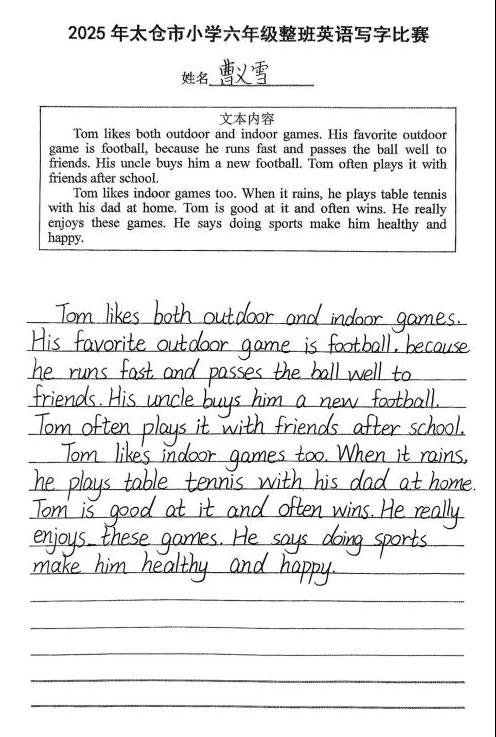 2025年太仓市小学六年级整班英语写字比赛
姓名 曹义雪
文本内容
Tom likes both outdoor and indoor games. His favorite outdoor
game is football, because he runs fast and passes the ball well to
friends. His uncle buys him a new football. Tom often plays it with
friends after school.
Tom likes indoor games too. When it rains, he plays table tennis
with his dad at home. Tom is good at it and often wins. He really
enjoys these games. He says doing sports make him healthy and
happy.
Tom likes both outdoor and indoor games.
His favorite outdoor game is football, because
he runs fast and passes the ball well to
friends. His uncle buys him a new football.
Tom often plays it with friends after school.
Tom likes indoor games too. When it rains,
he plays table tennis with his dad at home.
Tom is good at it and often wins. He really
enjoys these games. He says doing sports
make him healthy and happy.